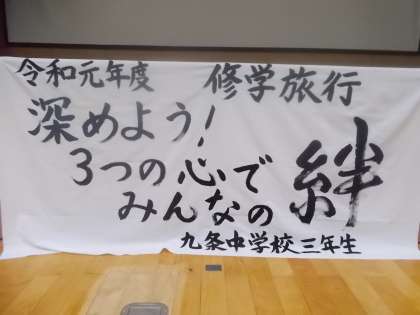 令和元年度 修学旅行
深めよう!
3つの心で
みんなの絆
九条中学校三年生